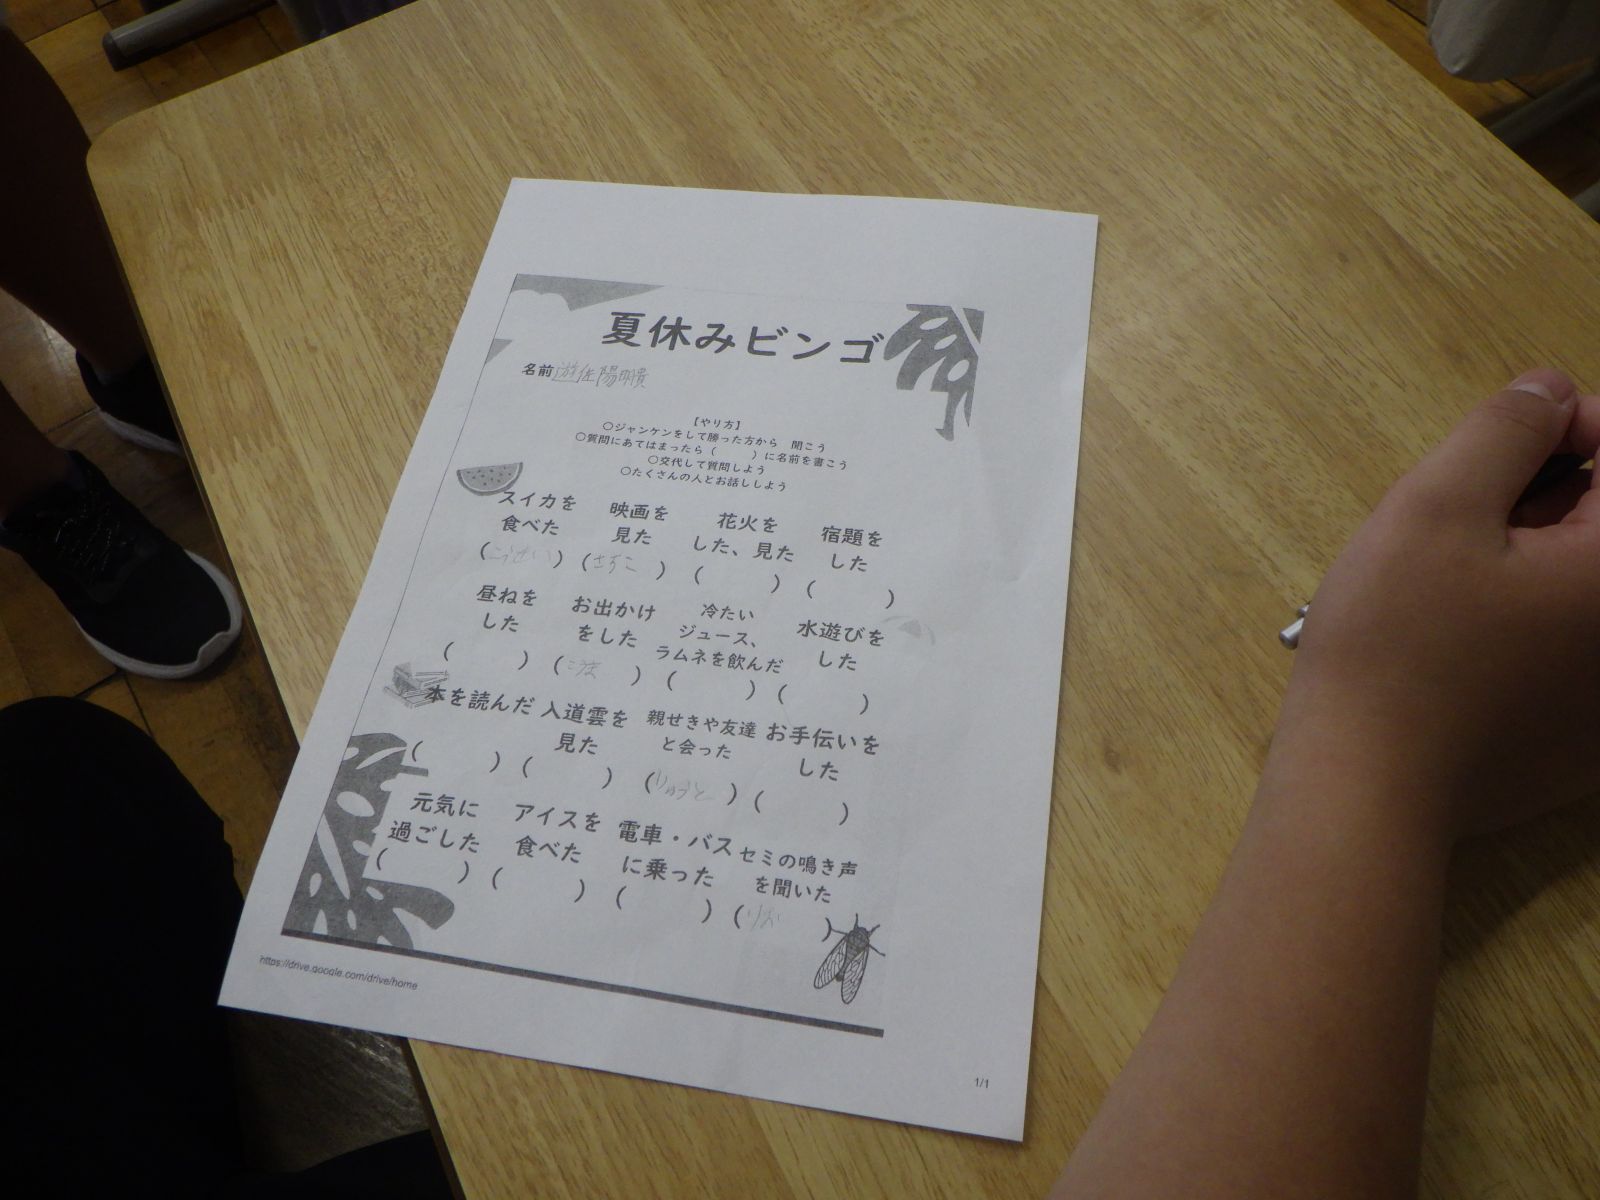 夏休みビンゴ
名前 遊佐陽明貴
【やり方】
○ジャンケンをして勝った方から 聞こう
○質問にあてはまったら( )に名前を書こう
○交代して質問しよう
○たくさんの人とお話ししよう
スイカを 映画を 花火を 宿題を
食べた 見た した、見た した
(こうせい) ( ) ( ) ( )
昼ねを お出かけ 冷たい 水遊びを
した をした ジュース、 した
ラムネを飲んだ
( ) (こうま) ( ) ( )
本を読んだ 入道雲を 親せきや友達 お手伝いを
見た と会った した
( ) ( ) (りゅうと) ( )
元気に アイスを 電車・バス セミの鳴き声
過ごした 食べた に乗った を聞いた
( ) ( ) ( ) (りお)
https://drive.google.com/drive/home
1/1